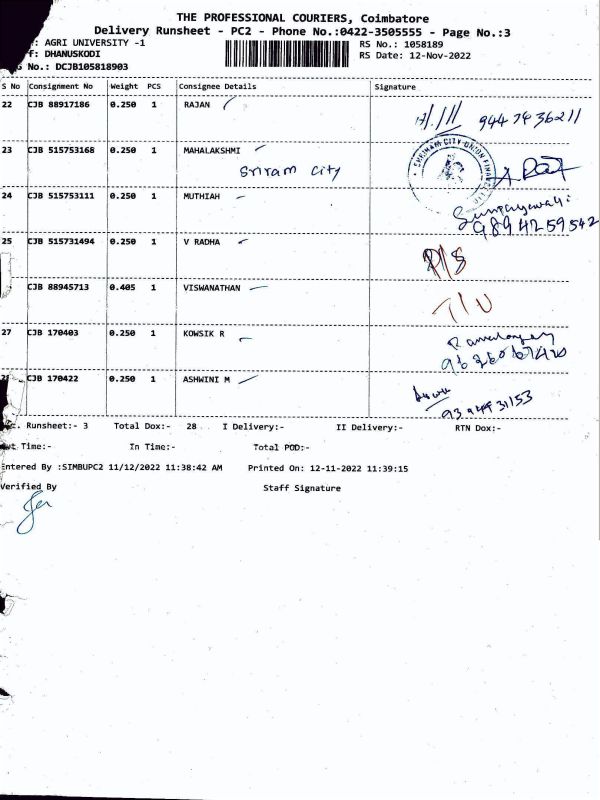 THE PROFESSIONAL COURIERS, Coimbatore
Delivery Runsheet - PC2 - Phone No.:0422-3505555 - Page No.:3
: AGRI UNIVERSITY -1
RS No.: 1058189
f: DHANUSKODI
RS Date: 12-Nov-2022
G No.: DCJB105818903
S No Consignment No Weight PCS Consignee Details Signature
22 CJB 88917186 0.250 1 RAJAN
23 CJB 515753168 0.250 1 MAHALAKSHMI
Sriram City
SHRIRAM CITY UNION FINANCE LTD
24 CJB 515753111 0.250 1 MUTHIAH
9894259542
25 CJB 515731494 0.250 1 V RADHA
CJB 88945713 0.405 1 VISWANATHAN
27 CJB 170403 0.250 1 KOWSIK R
CJB 170422 0.250 1 ASHWINI M
c. Runsheet:- 3 Total Dox:- 28 I Delivery:- II Delivery:- RTN Dox:-
Out Time:- In Time:- Total POD:-
Entered By :SIMBUPC2 11/12/2022 11:38:42 AM Printed On: 12-11-2022 11:39:15
Verified By Staff Signature